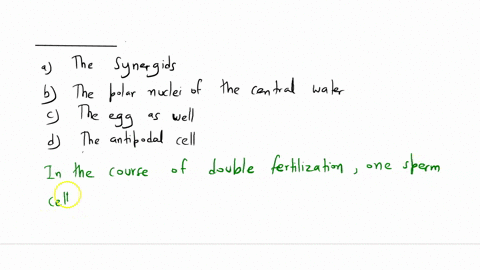 a) The Synergids
b) The polar nuclei of the central water
c) The egg as well
d) The antipodal cell
In the course of double fertilization, one sperm
cell